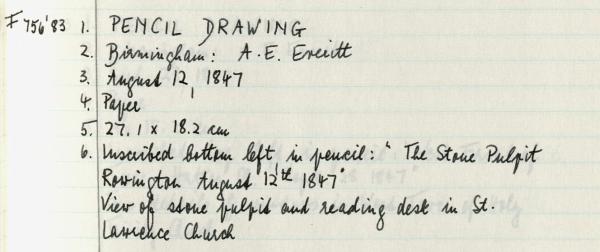 F 756'83 1. PENCIL DRAWING
2. Birmingham: A.E. Everitt
3. August 12, 1847
4. Paper
5. 27.1 x 18.2 cm
6. Inscribed bottom left in pencil: "The Stone Pulpit
Rowington August 12th 1847"
View of stone pulpit and reading desk in St.
Lawrence Church